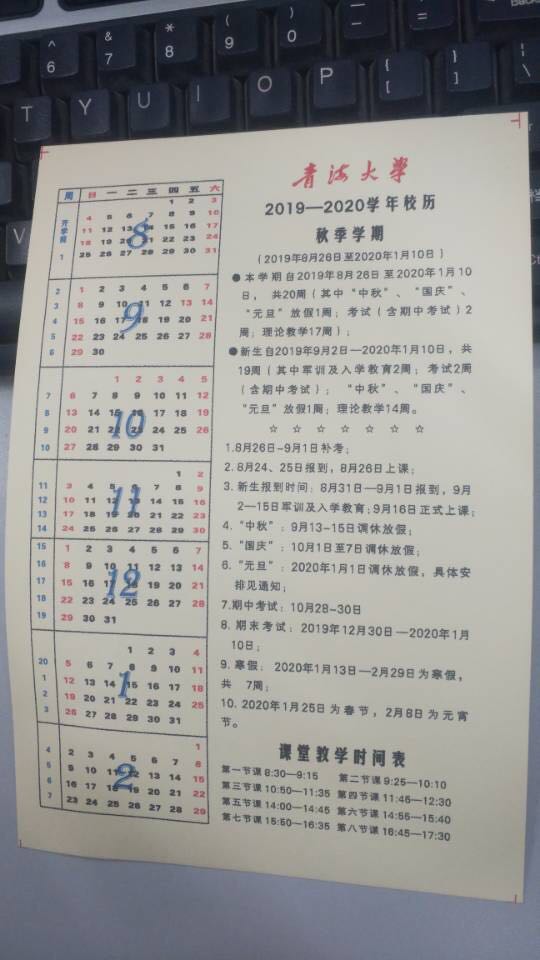 & 7
* 8
( 9
) 0
T Y U I O P { [ } ]
V
青海大學
2019—2020学年校历
秋季学期
(2019年8月26日至2020年1月10日)
●本学期自2019年8月26日至2020年1月10
日, 共20周(其中“中秋”、“国庆”、
“元旦”放假1周; 考试(含期中考试)2
周; 理论教学17周);
●新生自2019年9月2日—2020年1月10日, 共
19周(其中军训及入学教育2周; 考试2周
(含期中考试); “中秋”、“国庆”、
“元旦”放假1周; 理论教学14周。
☆ ☆ ☆ ☆ ☆ ☆ ☆
1.8月26日-9月1日补考;
2.8月24、25日报到, 8月26日上课;
3. 新生报到时间: 8月31日—9月1日报到, 9月
2—15日军训及入学教育; 9月16日正式上课;
4. “中秋”: 9月13-15日调休放假;
5. “国庆”: 10月1日至7日调休放假;
6. “元旦”: 2020年1月1日调休放假, 具体安
排见通知;
7.期中考试: 10月28-30日
8. 期末考试: 2019年12月30日—2020年1月
10日;
9. 寒假: 2020年1月13日—2月29日为寒假,
共 7周;
10. 2020年1月25日为春节, 2月8日为元宵
节。
课堂教学时间表
第一节课 8:30—9:15 第二节课 9:25—10:10
第三节课 10:50—11:35 第四节课 11:45—12:30
第五节课 14:00—14:45 第六节课 14:55—15:40
第七节课 15:50—16:35 第八节课 16:45—17:30
周 日 一 二 三 四 五 六
开学前
1 2 3
4 5 6 7 8 9 10
11 12 13 14 15 16 17
18 19 20 21 22 23 24
1 25 26 27 28 29 30 31
8
2 1 2 3 4 5 6 7
3 8 9 10 11 12 13 14
4 15 16 17 18 19 20 21
5 22 23 24 25 26 27 28
6 29 30
9
7 1 2 3 4 5
7 6 7 8 9 10 11 12
8 13 14 15 16 17 18 19
9 20 21 22 23 24 25 26
10 27 28 29 30 31
10
1 2
11 3 4 5 6 7 8 9
12 10 11 12 13 14 15 16
13 17 18 19 20 21 22 23
14 24 25 26 27 28 29 30
11
15 1 2 3 4 5 6 7
16 8 9 10 11 12 13 14
17 15 16 17 18 19 20 21
18 22 23 24 25 26 27 28
19 29 30 31
12
1 2 3 4
20 5 6 7 8 9 10 11
1 12 13 14 15 16 17 18
2 19 20 21 22 23 24 25
3 26 27 28 29 30 31
1
4 1
4 2 3 4 5 6 7 8
5 9 10 11 12 13 14 15
6 16 17 18 19 20 21 22
7 23 24 25 26 27 28 29
2